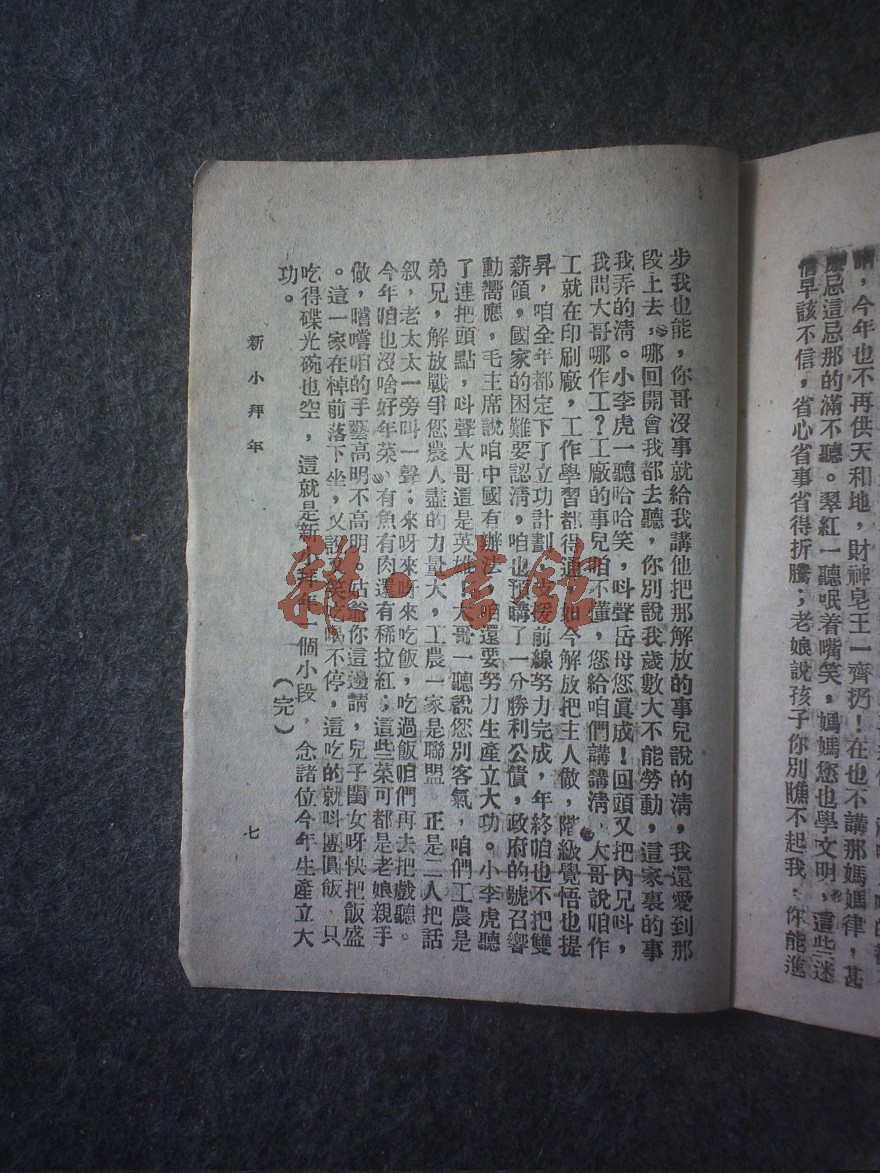 晴，今年也不再供天和地，財神皂王一齊扔！在也不講那媽媽律，甚
麽忌這忌那的滿不聽。翠紅一聽呡着嘴笑，媽媽您也學文明，這些迷
信早該不信，省心省事省得折騰；老娘說孩子你別瞧不起我，你能進
步我也能，你哥沒事就給我講他把那解放的事兒說的清，我還愛到那
段上去，哪回開會我都去聽，你別說我歲數大不能勞動，這家裏的事
我弄的清。小李虎一聽哈哈笑，呌聲岳母您眞成！回頭又把內兄呌，
我問大哥哪作工？工廠的事兒咱不懂，您給咱們講講淸，大哥說咱作
工就在印刷廠，工作學習都得通，如今解放把主人做，階級覺悟也提
昇，咱全年都定下了立功計劃，支援前線努力完成，年終咱也不把雙
薪領，國家的困難要認清，咱也預購了一分勝利公債，政府的號召響
動嚮應，毛主席說咱中國有辦法，咱還要努力生產立大功。小李虎聽
了連把頭點，呌聲大哥這是英雄，大哥一聽說您別客氣，咱們工農是
弟兄，解放戰爭您農人盡的力量大，工農一家是聯盟 正是二人把話
叙，老太太一旁叫一聲；來呀來呀來吃飯，吃過飯咱們再去把戲聽。
今年咱也沒啥好年菜，有魚有肉還有稀拉紅；這些菜可都是老娘親手
做，嚐嚐咱的手藝高明不高明。姑爺你這邊請，兒子閨女呀快把飯盛
。這一家在棹前落下坐，又說又笑吃喝不停，這吃的就呌團圓飯，只
吃得碟光碗也空，這就是新小拜年一個小段，念諸位今年生產立大
功。
（完）
新小拜年
七
雜·書館